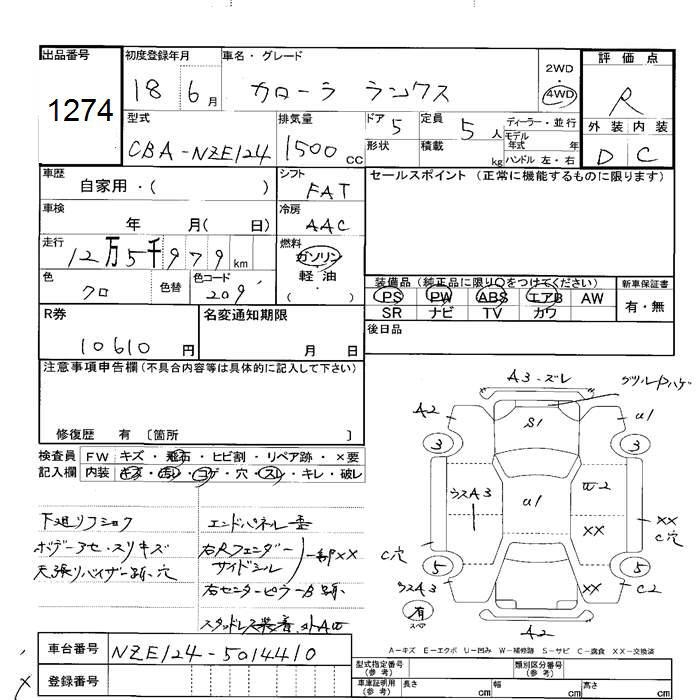 出品番号
1274
初度登録年月
18 6月
車名・グレード
カローラ ランクス
2WD
・
4WD
評価点
R
外装 内装
D C
型式
CBA-NZE124
排気量
1500 cc
ドア 5
形状
定員 5人
積載 kg
ディーラー・並行
モデル
年式 年
ハンドル 左・右
車歴
自家用・( )
シフト
FAT
セールスポイント (正常に機能するものに限ります)
車検
年 月( 日)
冷房
AAC
走行
12万5千979 km
燃料
ガソリン
・
軽油
( )
色
クロ
色替
色コード
209
装備品 (純正品に限り○をつけてください)
PS PW ABS エアB AW
SR ナビ TV カワ
新車保証書
有・無
R券
10610円
名変通知期限
月 日
後日品
注意事項申告欄 (不具合内容等は具体的に記入して下さい)
修復歴 有 〔箇所 〕
検査員
記入欄
FW キズ・飛石・ヒビ割・リペア跡・×要
内装 キズ・汚レ・コゲ・穴・スレ・キレ・破レ
下廻リフショク
ボデーアセ・スリキズ
天張リバイザー跡、穴
エンドパネル歪
右Rフェンダー
サイドシル
右センターピラーB
A3・ズレ
グリルPハゲ
A2
S1
U1
3
3
ウスA3
U1
W2
XX
XX
C穴
C穴
5
5
XX
ウスA3
C2
有
スペア
A2
A-キズ E-エクボ U-凹み W-補修跡 S-サビ C-腐食 XX-交換済
車台番号
NZE124-5014410
登録番号
型式指定番号
(参考)
類別区分番号
(参考)
車庫証明用
(参考)
長さ cm
幅 cm
高さ cm